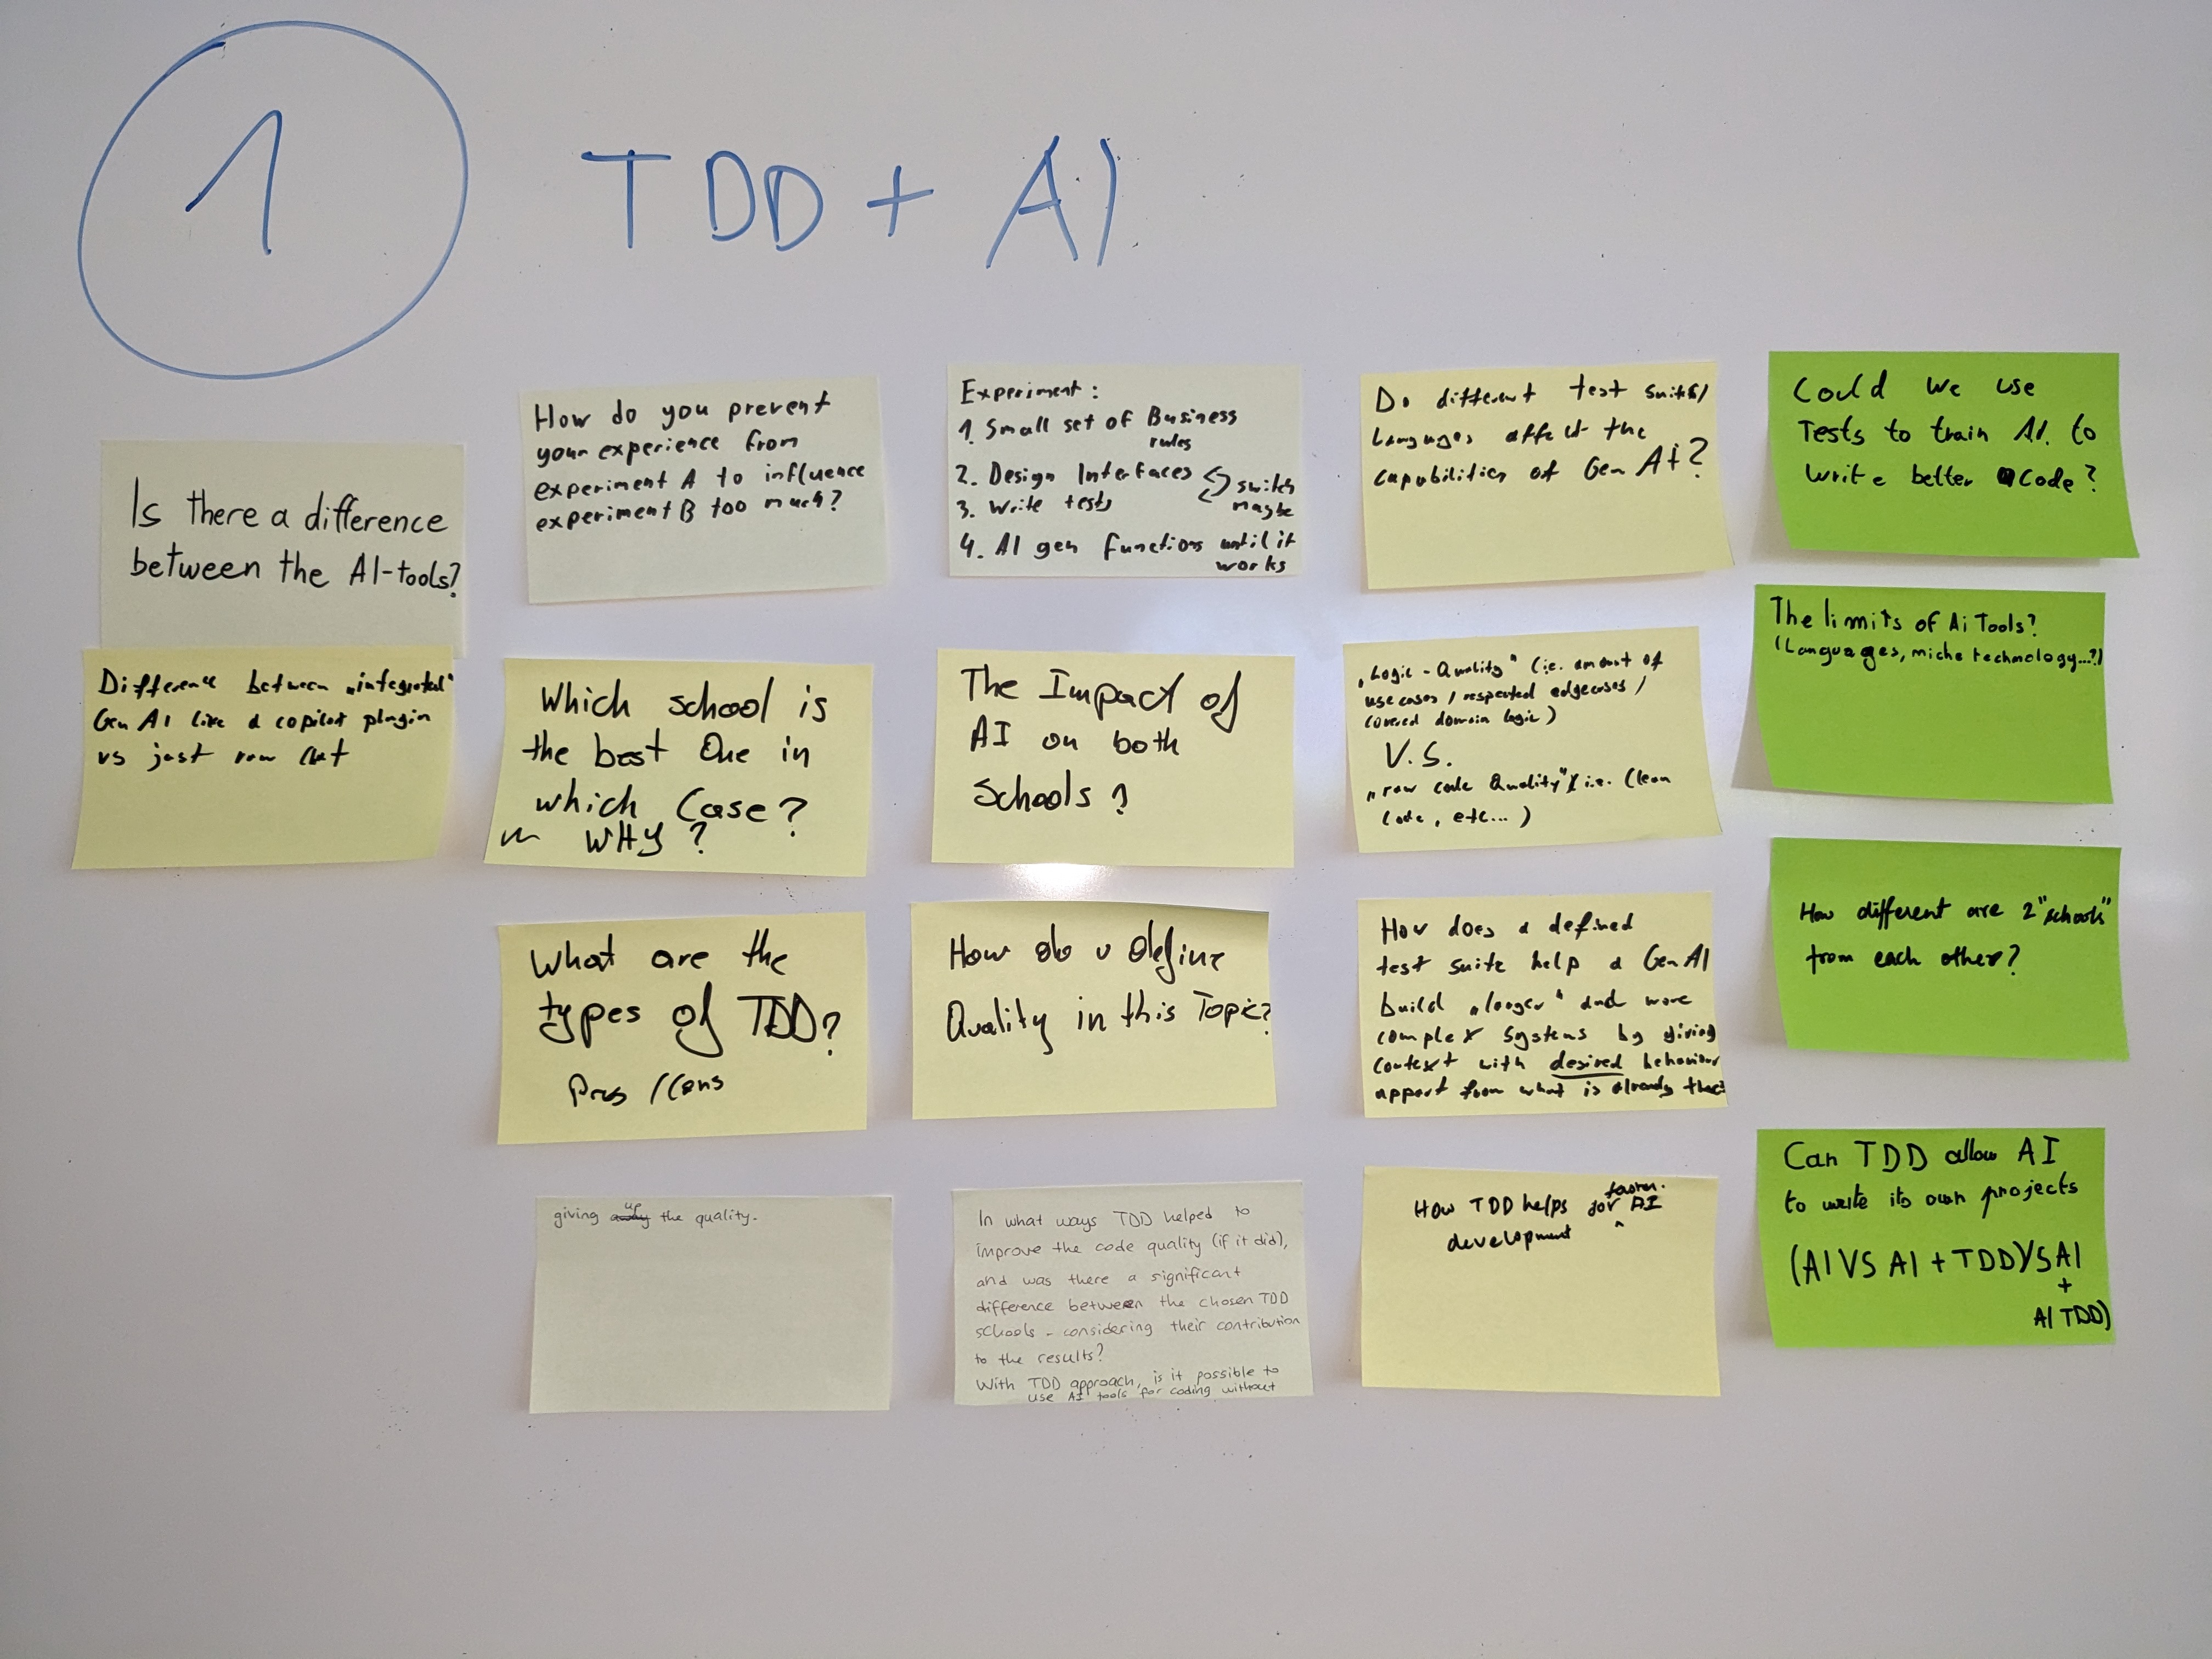 1
TDD + AI
Is there a difference
between the AI-tools?
Difference between „integrated"
Gen AI like a copilot plugin
vs just raw chat
How do you prevent
your experience from
experiment A to influence
experiment B too much?
Which school is
the best One in
which Case?
WHY?
What are the
types of TDD?
Pros / Cons
giving away up the quality.
Experiment:
1. Small set of Business
rules
2. Design Interfaces
3. Write tests
switch
maybe
4. AI gen functions until it
works
The Impact of
AI on both
Schools?
How do u define
Quality in this Topic?
In what ways TDD helped to
improve the code quality (if it did),
and was there a significant
difference between the chosen TDD
schools - considering their contribution
to the results?
With TDD approach, is it possible to
use AI tools for coding without
Do different test suites/
Languages affect the
capabilities of Gen AI?
„Logic-Quality" (i.e. amount of
use cases / respected edgecases /
covered domain logic)
V.S.
„raw code Quality" i.e. (Clean
Code, etc...)
How does a defined
test suite help a GenAI
build „longer" and more
complex systems by giving
context with desired behaviour
appart from what is already there
How TDD helps for faster AI
development
Could we use
Tests to train AI. to
write better Code?
The limits of Ai Tools?
(Languages, niche technology...?)
How different are 2 "schools"
from each other?
Can TDD allow AI
to write its own projects
(AI VS AI + TDD) VS AI
+
AI TDD)